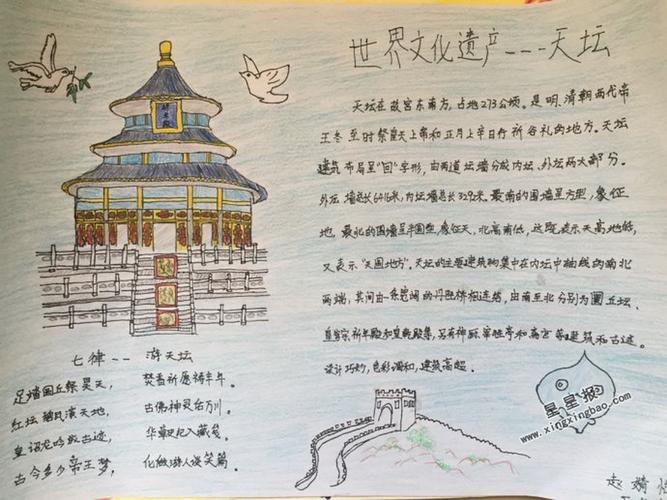 世界文化遗产---天坛
天坛在故宫东南方，占地273公顷。是明、清朝两代帝
王冬至时祭皇天上帝和正月上辛日行祈谷礼的地方。天坛
建筑布局呈"回"字形，由两道坛墙分成内坛、外坛两大部分。
外坛墙总长6416米，内坛墙总长3292米。最南的围墙呈方型，象征
地，最北的围墙呈半圆型，象征天，北高南低，这既表示天高地低，
又表示"天圆地方"。天坛的主要建筑物集中在内坛中轴线的南北
两端，其间由一条宽阔的丹陛桥相连结，由南至北分别为圜丘坛、
皇穹宇祈年殿和皇乾殿等，另有神厨、宰牲亭和斋宫等建筑和古迹。
设计巧妙，色彩调和，建筑高超。
七律--- 游天坛
足踏圜丘祭昊天， 焚香祈愿祷丰年。
红坛 天地， 古佛神灵 万川。
皇 龙吟 古迹， 入藏 。
古今多少帝王梦， 化做游人谈笑篇。
星星报
www.xingxingbao.com
赵